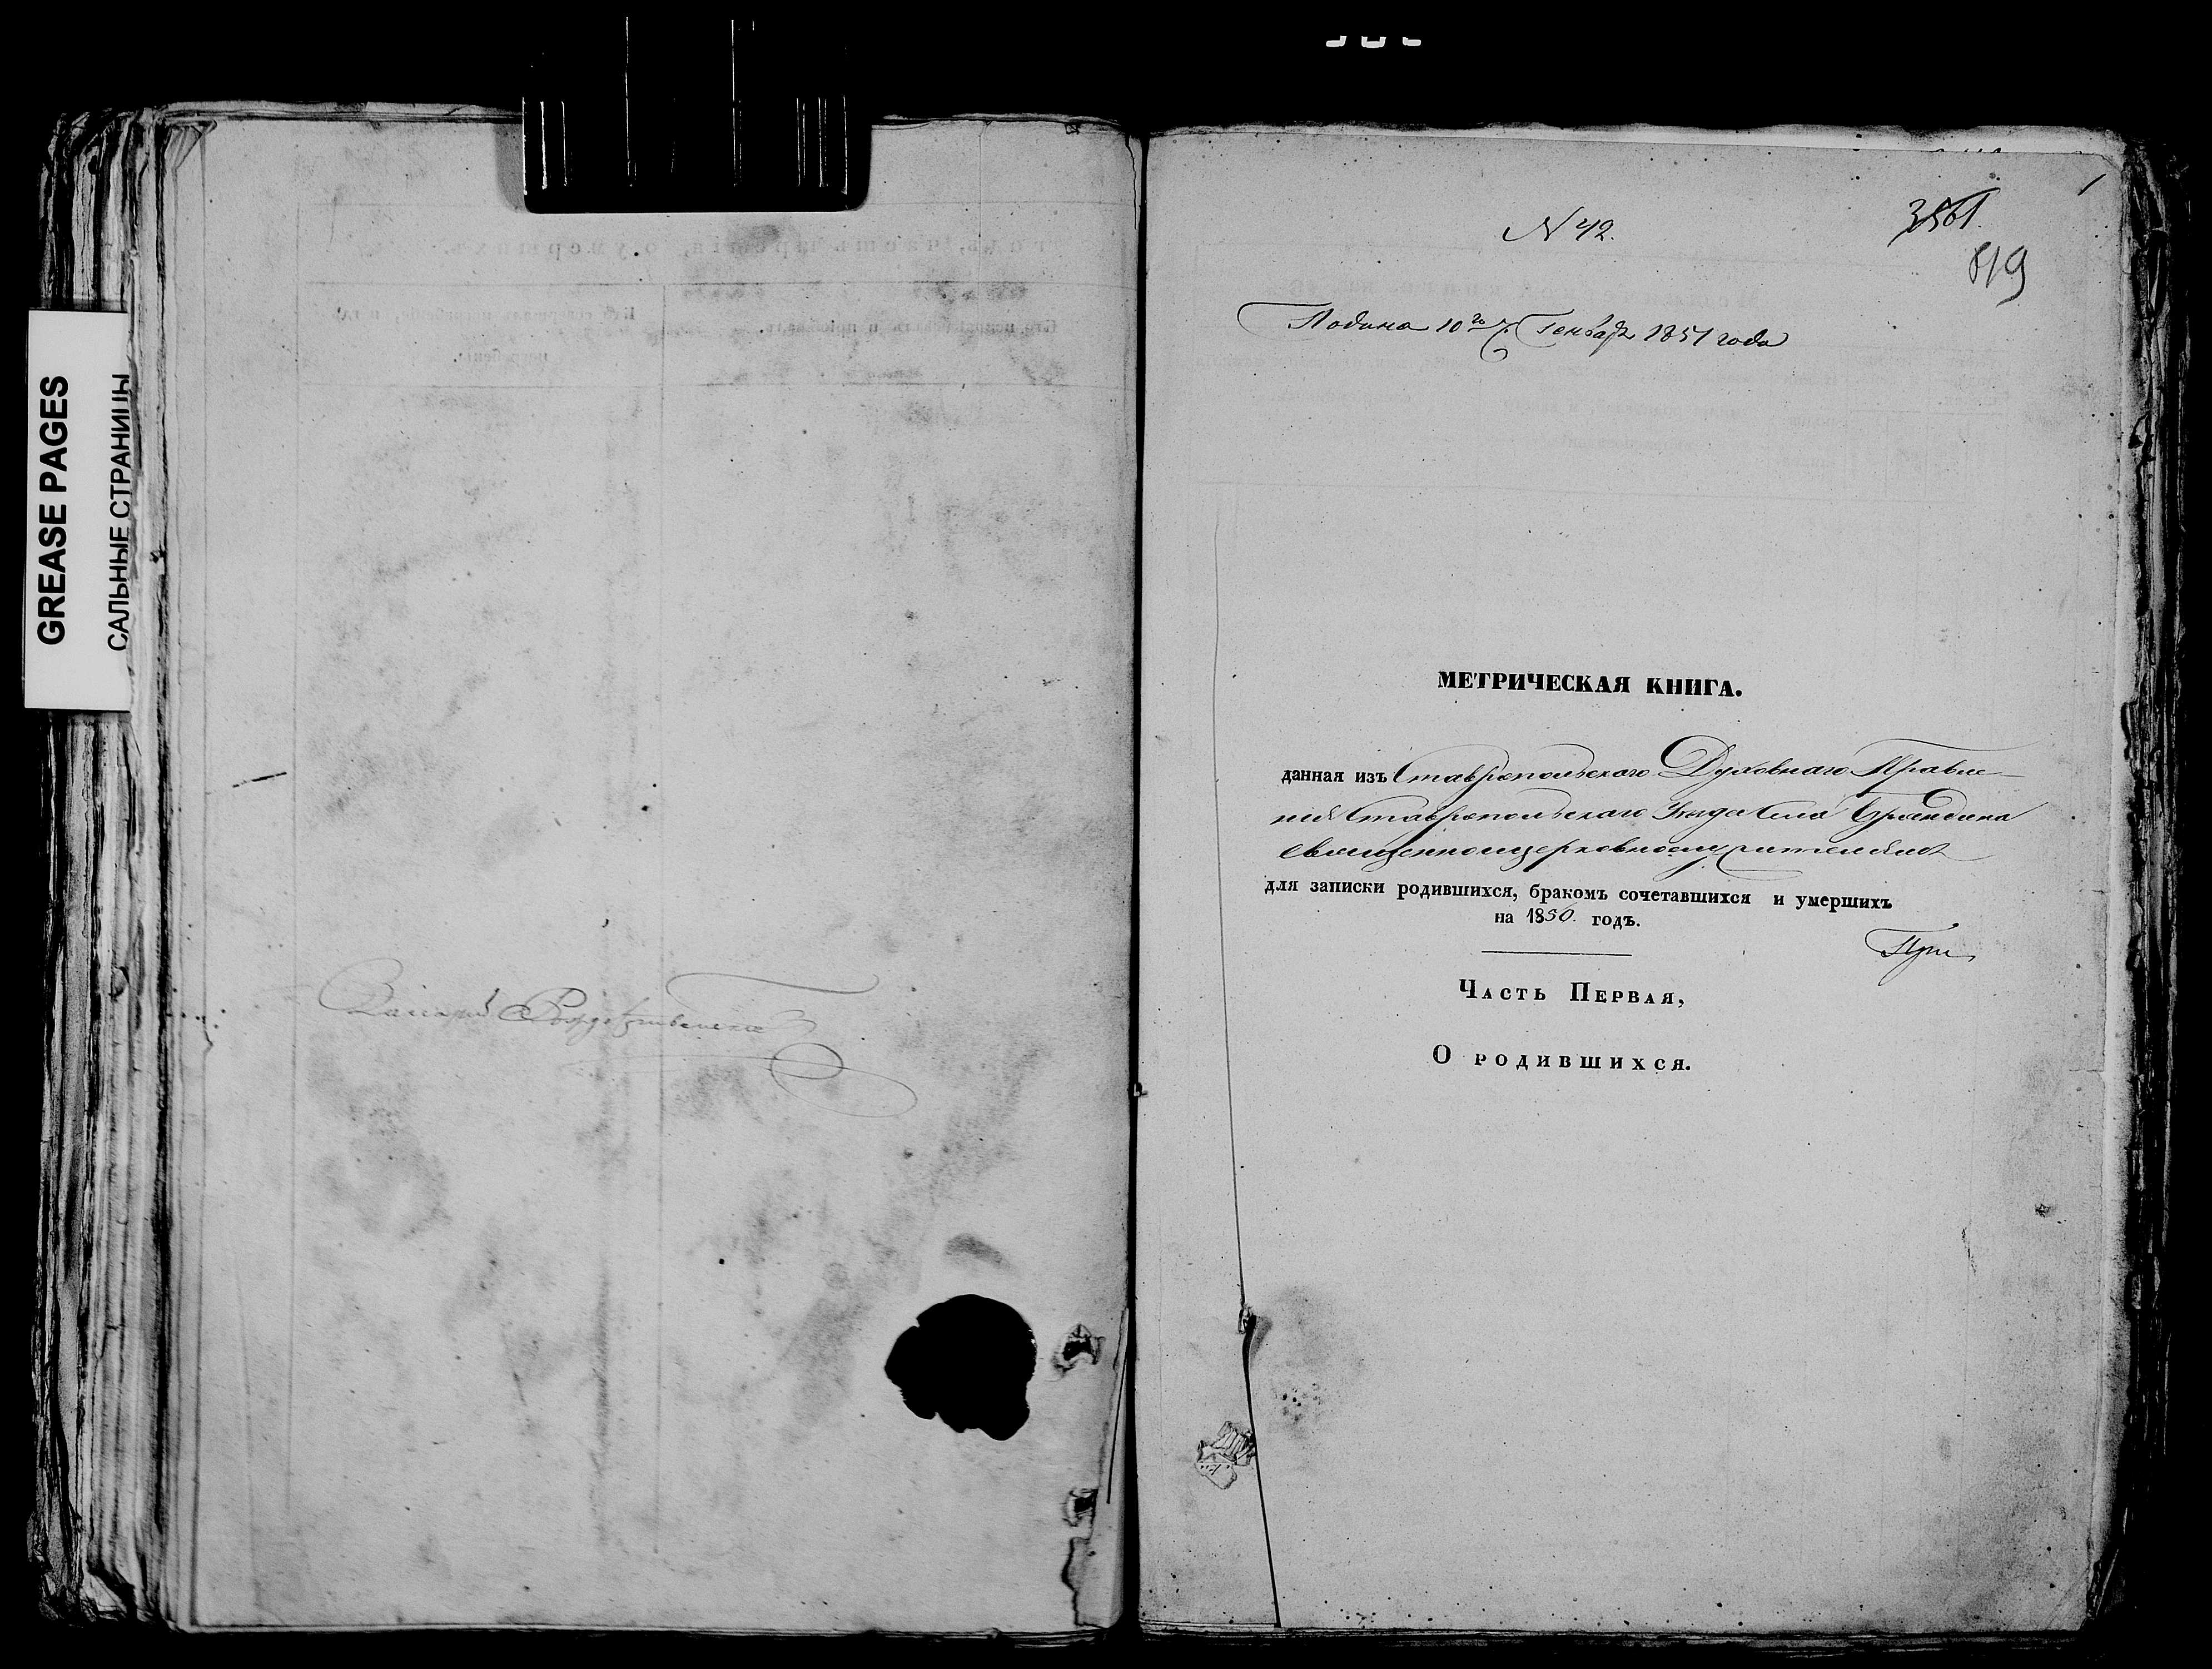 GREASE PAGES
САЛЬНЫЕ СТРАНИЦЫ
Рождественскій
1
N 42.
3561.
819
Подана 10го Генваря 1851 года
МЕТРИЧЕСКАЯ КНИГА.
данная изъ Ставропольскаго Духовнаго Правле-
нія Ставропольскаго Уезда Села
священноцерковнослужителямъ
для записки родившихся, бракомъ сочетавшихся и умершихъ
на 1850. годъ.
При
Часть Первая,
О родившихся.